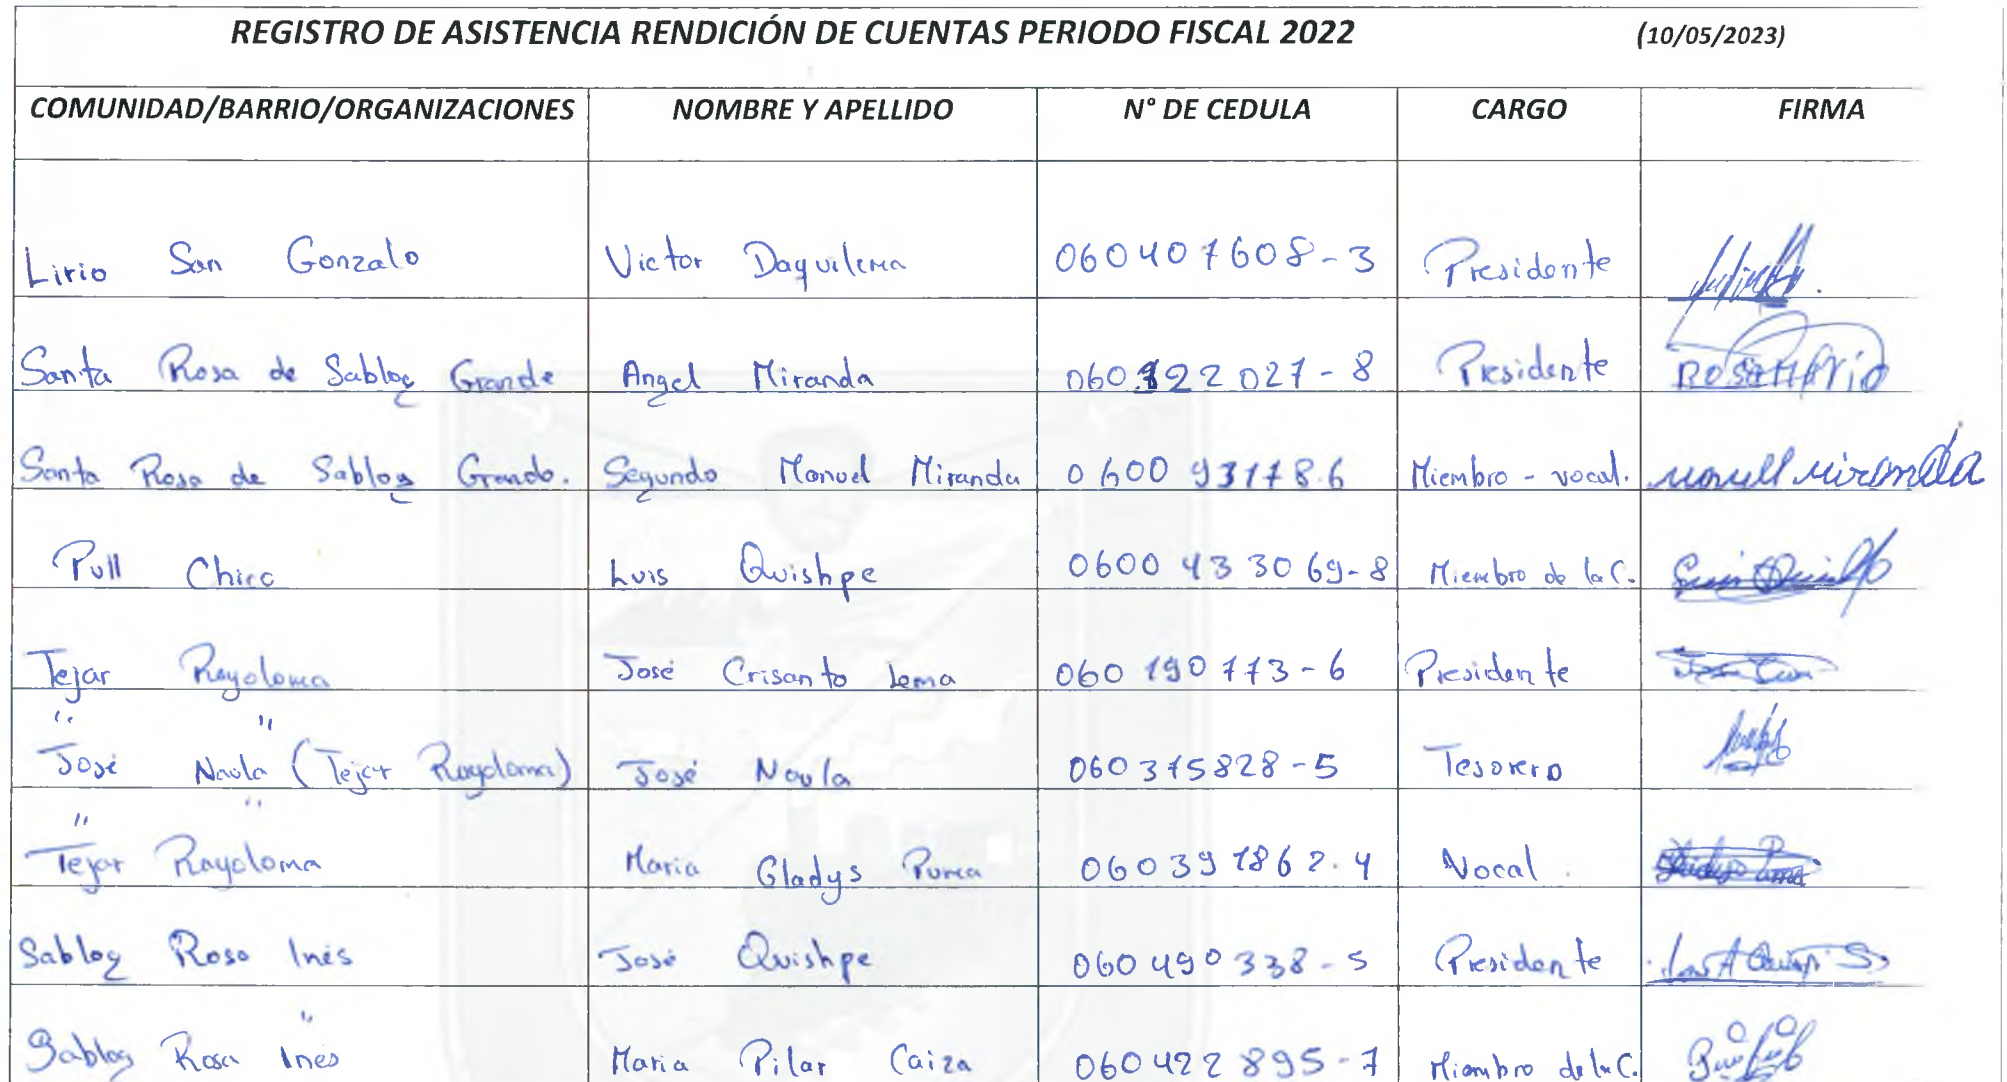 REGISTRO DE ASISTENCIA RENDICIÓN DE CUENTAS PERIODO FISCAL 2022 (10/05/2023)
COMUNIDAD/BARRIO/ORGANIZACIONES NOMBRE Y APELLIDO N° DE CEDULA CARGO FIRMA
Lirio San Gonzalo Victor Daquilema 060407608-3 Presidente
Santa Rosa de Sablog Grande Angel Miranda 060122027-8 Presidente
Santa Rosa de Sablog Grande. Segundo Manuel Miranda 060093178.6 Miembro - vocal. Manuell Miranda
Pull Chico Luis Quishpe 0600433069-8 Miembro de la C.
Tejar Rayoloma José Crisanto Lema 060190773-6 Presidente
" "
José Naula (Tejar Rayoloma) José Naula 060375828-5 Tesorero
" "
Tejar Rayoloma Maria Gladys Puma 060391862.4 Vocal
Sablog Rosa Inés José Quishpe 060490338-5 Presidente
"
Sablog Rosa Inés Maria Pilar Caiza 060422895-7 Miembro de la C.